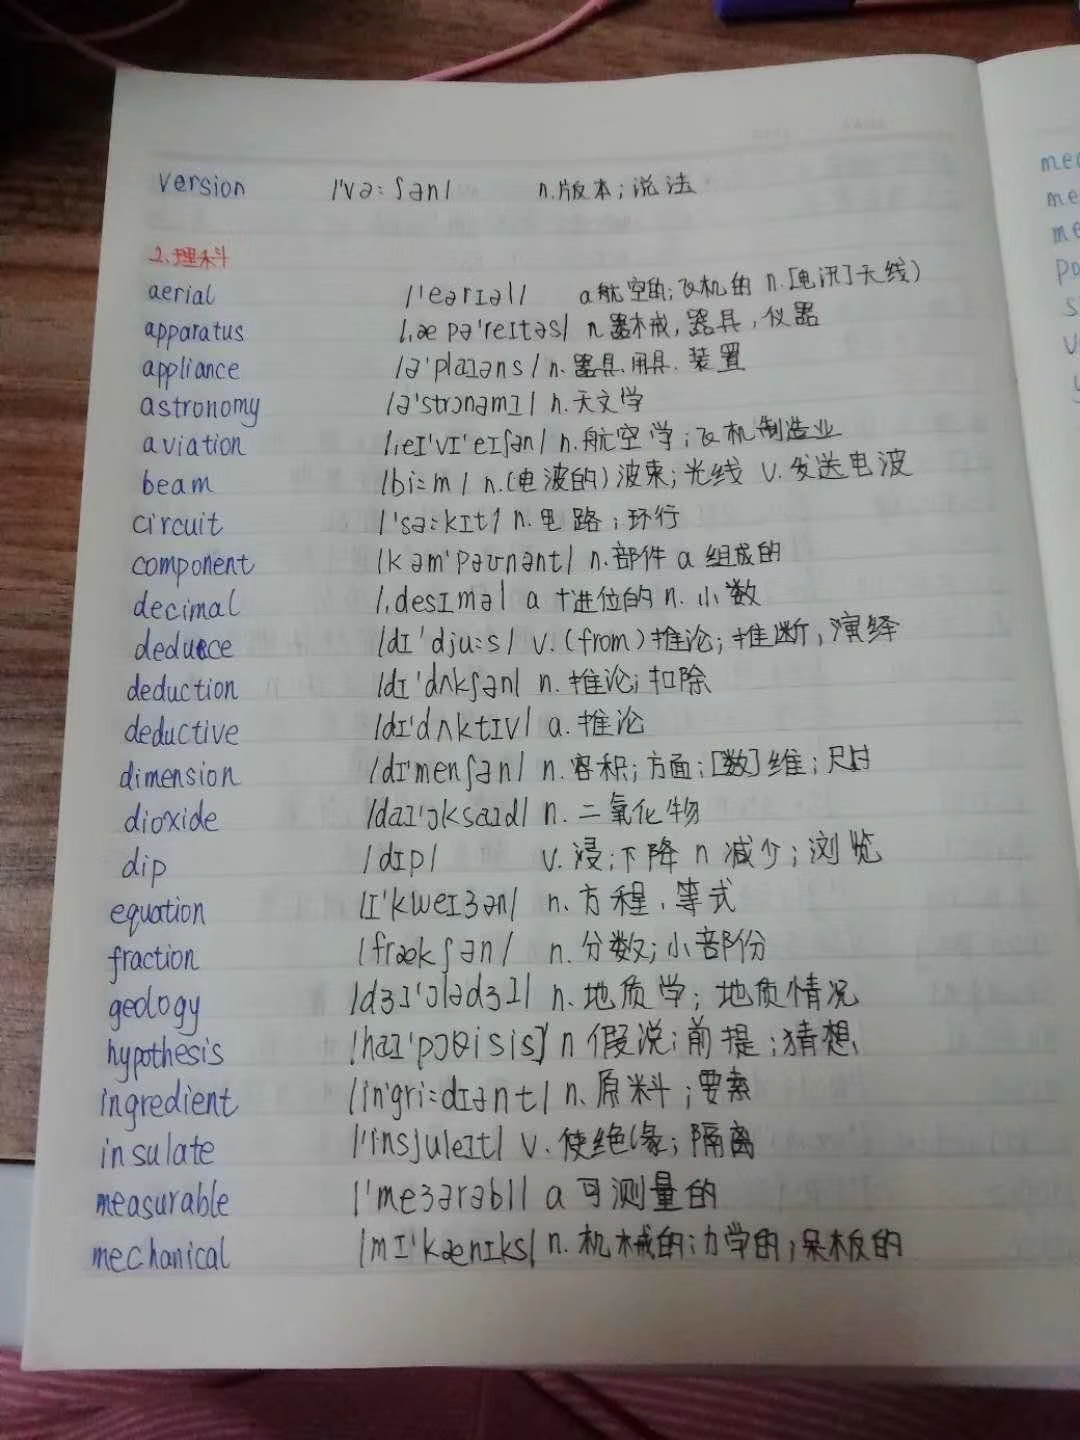 version /'və:ʃən/ n.版本;说法
2.理科
aerial /'eərɪəl/ a航空的;飞机的 n.[电讯]天线)
apparatus /,æpə'reɪtəs/ n器械,器具,仪器
appliance /ə'plaɪəns/ n.器具.用具.装置
astronomy /ə'strɔnəmɪ/ n.天文学
aviation /,eɪ'vɪ'eɪʃən/ n.航空学;飞机制造业
beam /bi:m/ n.(电波的)波束;光线 v.发送电波
circuit /'sə:kɪt/ n.电路;环行
component /kəm'pəʊnənt/ n.部件 a 组成的
decimal /,desɪməl a 十进位的 n.小数
deduce /dɪ'dju:s/ v.(from)推论;推断,演绎
deduction /dɪ'dʌkʃən/ n.推论;扣除
deductive /dɪ'dʌktɪv/ a.推论
dimension /dɪ'menʃən/ n.容积;方面;[数]维;尺寸
dioxide /daɪ'ɔksaɪd/ n.二氧化物
dip /dɪp/ v.浸;下降 n 减少;浏览
equation /ɪ'kweɪʒən/ n.方程.等式
fraction /frækʃən/ n.分数;小部份
geology /dʒɪ'ɔlədʒɪ/ n.地质学;地质情况
hypothesis /haɪ'pɔθisis] n 假说;前提;猜想
ingredient /in'gri:dɪənt/ n.原料;要素
insulate /'insjuleɪt/ v.使绝缘;隔离
measurable /'meʒərəbl/ a 可测量的
mechanical /mɪ'kænɪks/ n.机械的;力学的;呆板的